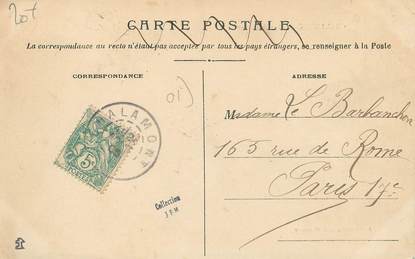 20t
CARTE POSTALE
La correspondance au recto n'étant pas acceptée par tous les pays étrangers, se renseigner à la Poste
CORRESPONDANCE
ADRESSE
01)
ALAMONT
5c
POSTES
Collection
J F M
Madame Le Barbanchon
165 rue de Rome
Paris 17e